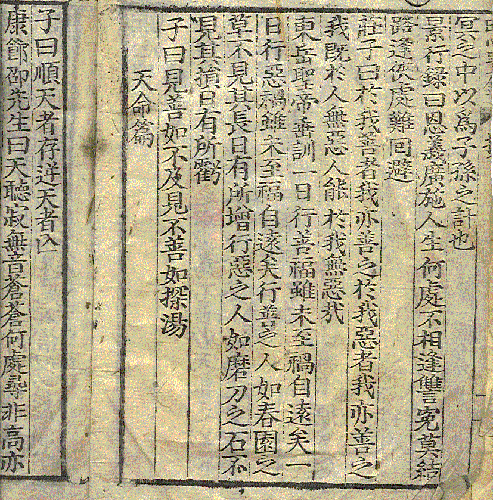 冥冥之中以爲子孫之計也
景行録曰恩義廣施人生何處不相逢讐寃莫結
路逢狹處難回避
莊子曰於我善者我亦善之於我惡者我亦善之
我既於人無惡人能於我無惡哉
東岳聖帝垂訓一日行善福雖未至禍自遠矣一
日行惡禍雖未至福自遠矣行善之人如春園之
草不見其長日有所增行惡之人如磨刀之石不
見其損日有所虧
子曰見善如不及見不善如探湯
天命篇
子曰順天者存逆天者亡
康節邵先生曰天聽寂無音蒼蒼何處尋非高亦